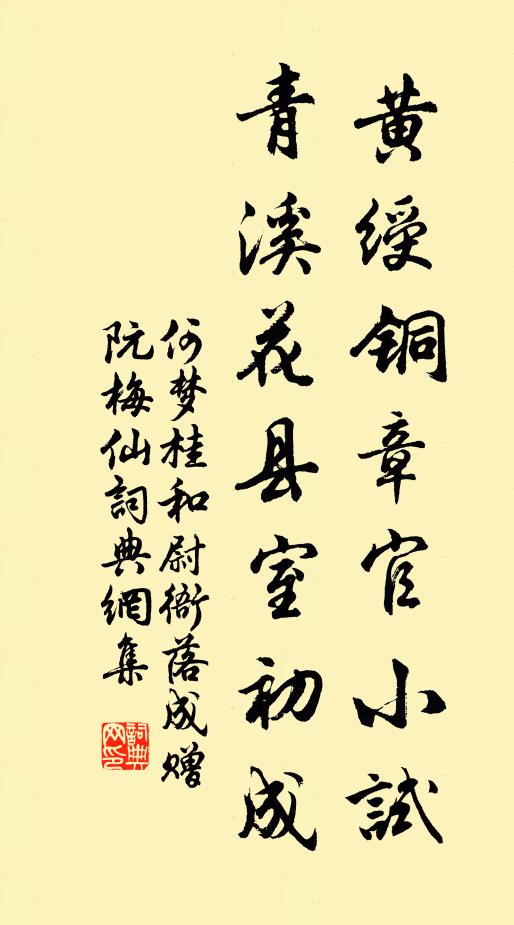 黄綬銅章官小試
青溪花县室初成
何梦桂和尉衙落成赠
阮梅仙詞典網集
詞典
网印